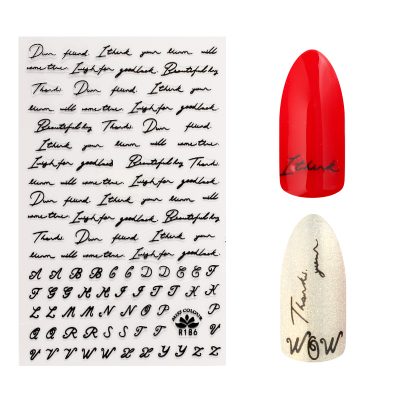 Dear friend. I think your dream will
come true. I wish for good luck. Beautiful by
Thanks. Dear friend. I think your
dream will come true. I wish for good luck
Beautiful by. Thanks. Dear friend.
I think your dream will come
I wish for good luck. Beautiful by. Thanks
dream will come true. I think your dream will
come true. I wish for good luck. Beautiful by
Thanks. Dear friend. I think your
dream will come true. I wish for good luck.
A A B B C C D D E E F
F G G H H I I J J K K
L L M M N N O P
Q Q R R S S T T
R186
V V W W X Y Y Z Z
I think
Thanks. your
WOW